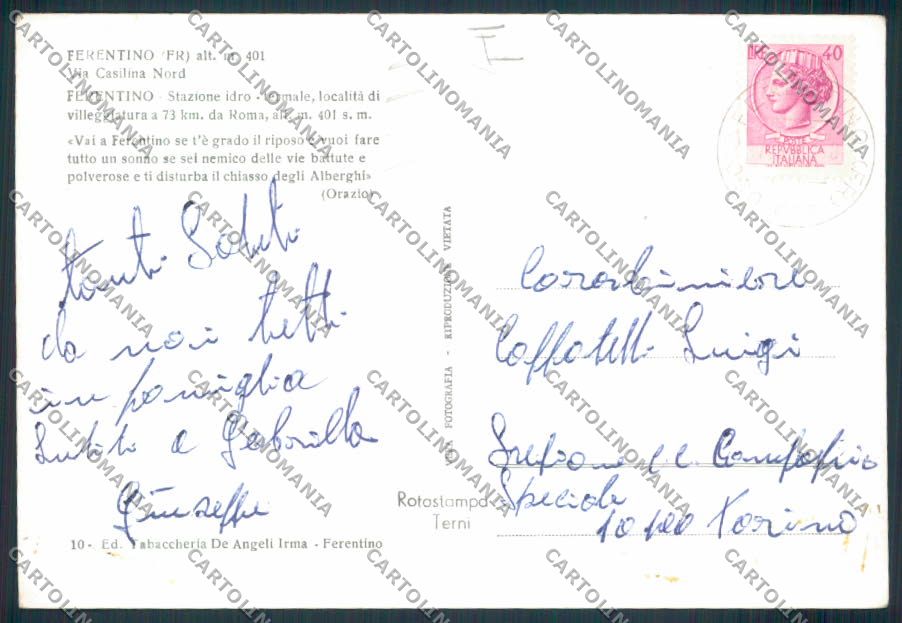 FERENTINO (FR) alt. m. 401
Via Casilina Nord
FERENTINO - Stazione idro - termale, località di
villeggiatura a 73 km. da Roma, alt. m. 401 s. m.
«Vai a Ferentino se t'è grado il riposo e vuoi fare
tutto un sonno se sei nemico delle vie battute e
polverose e ti disturba il chiasso degli Alberghi»
(Orazio)
tanti Saluti
da noi tutti
in famiglia
Saluti a Gabriella
Giuseppe
10 - Ed. Tabaccheria De Angeli Irma - Ferentino
VERA FOTOGRAFIA - RIPRODUZIONE VIETATA
Rotostampa
Terni
LIRE 40
POSTE
REPVBBLICA
ITALIANA
Carabiniere
Caffatelli Luigi
CC Compagnia
Speciale
10100 Torino
CARTOLINOMANIA